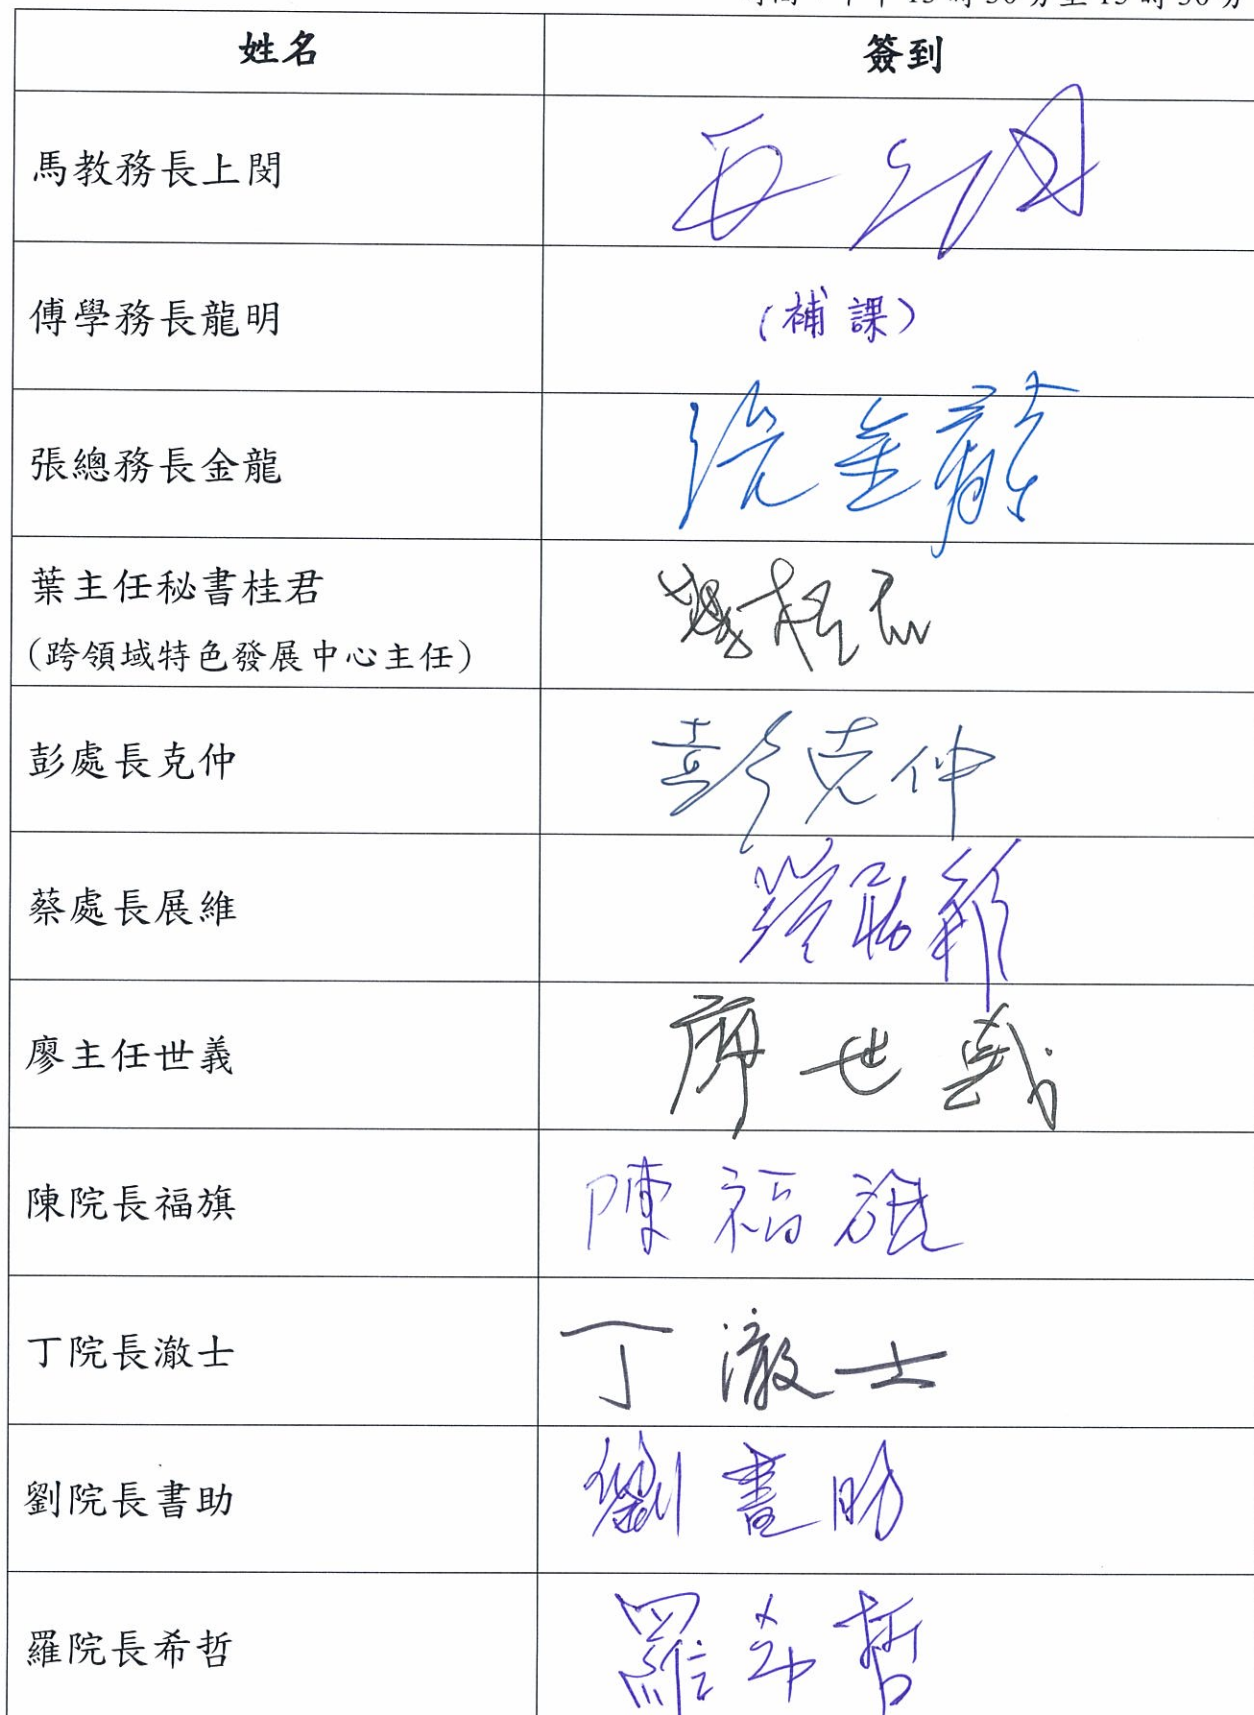 姓名 簽到
馬教務長上閔
傅學務長龍明 (補課)
張總務長金龍 張金龍
葉主任秘書桂君 葉桂君
(跨領域特色發展中心主任)
彭處長克仲 彭克仲
蔡處長展維 蔡展維
廖主任世義 廖世義
陳院長福旗 陳福旗
丁院長澈士 丁澈士
劉院長書助 劉書助
羅院長希哲 羅希哲